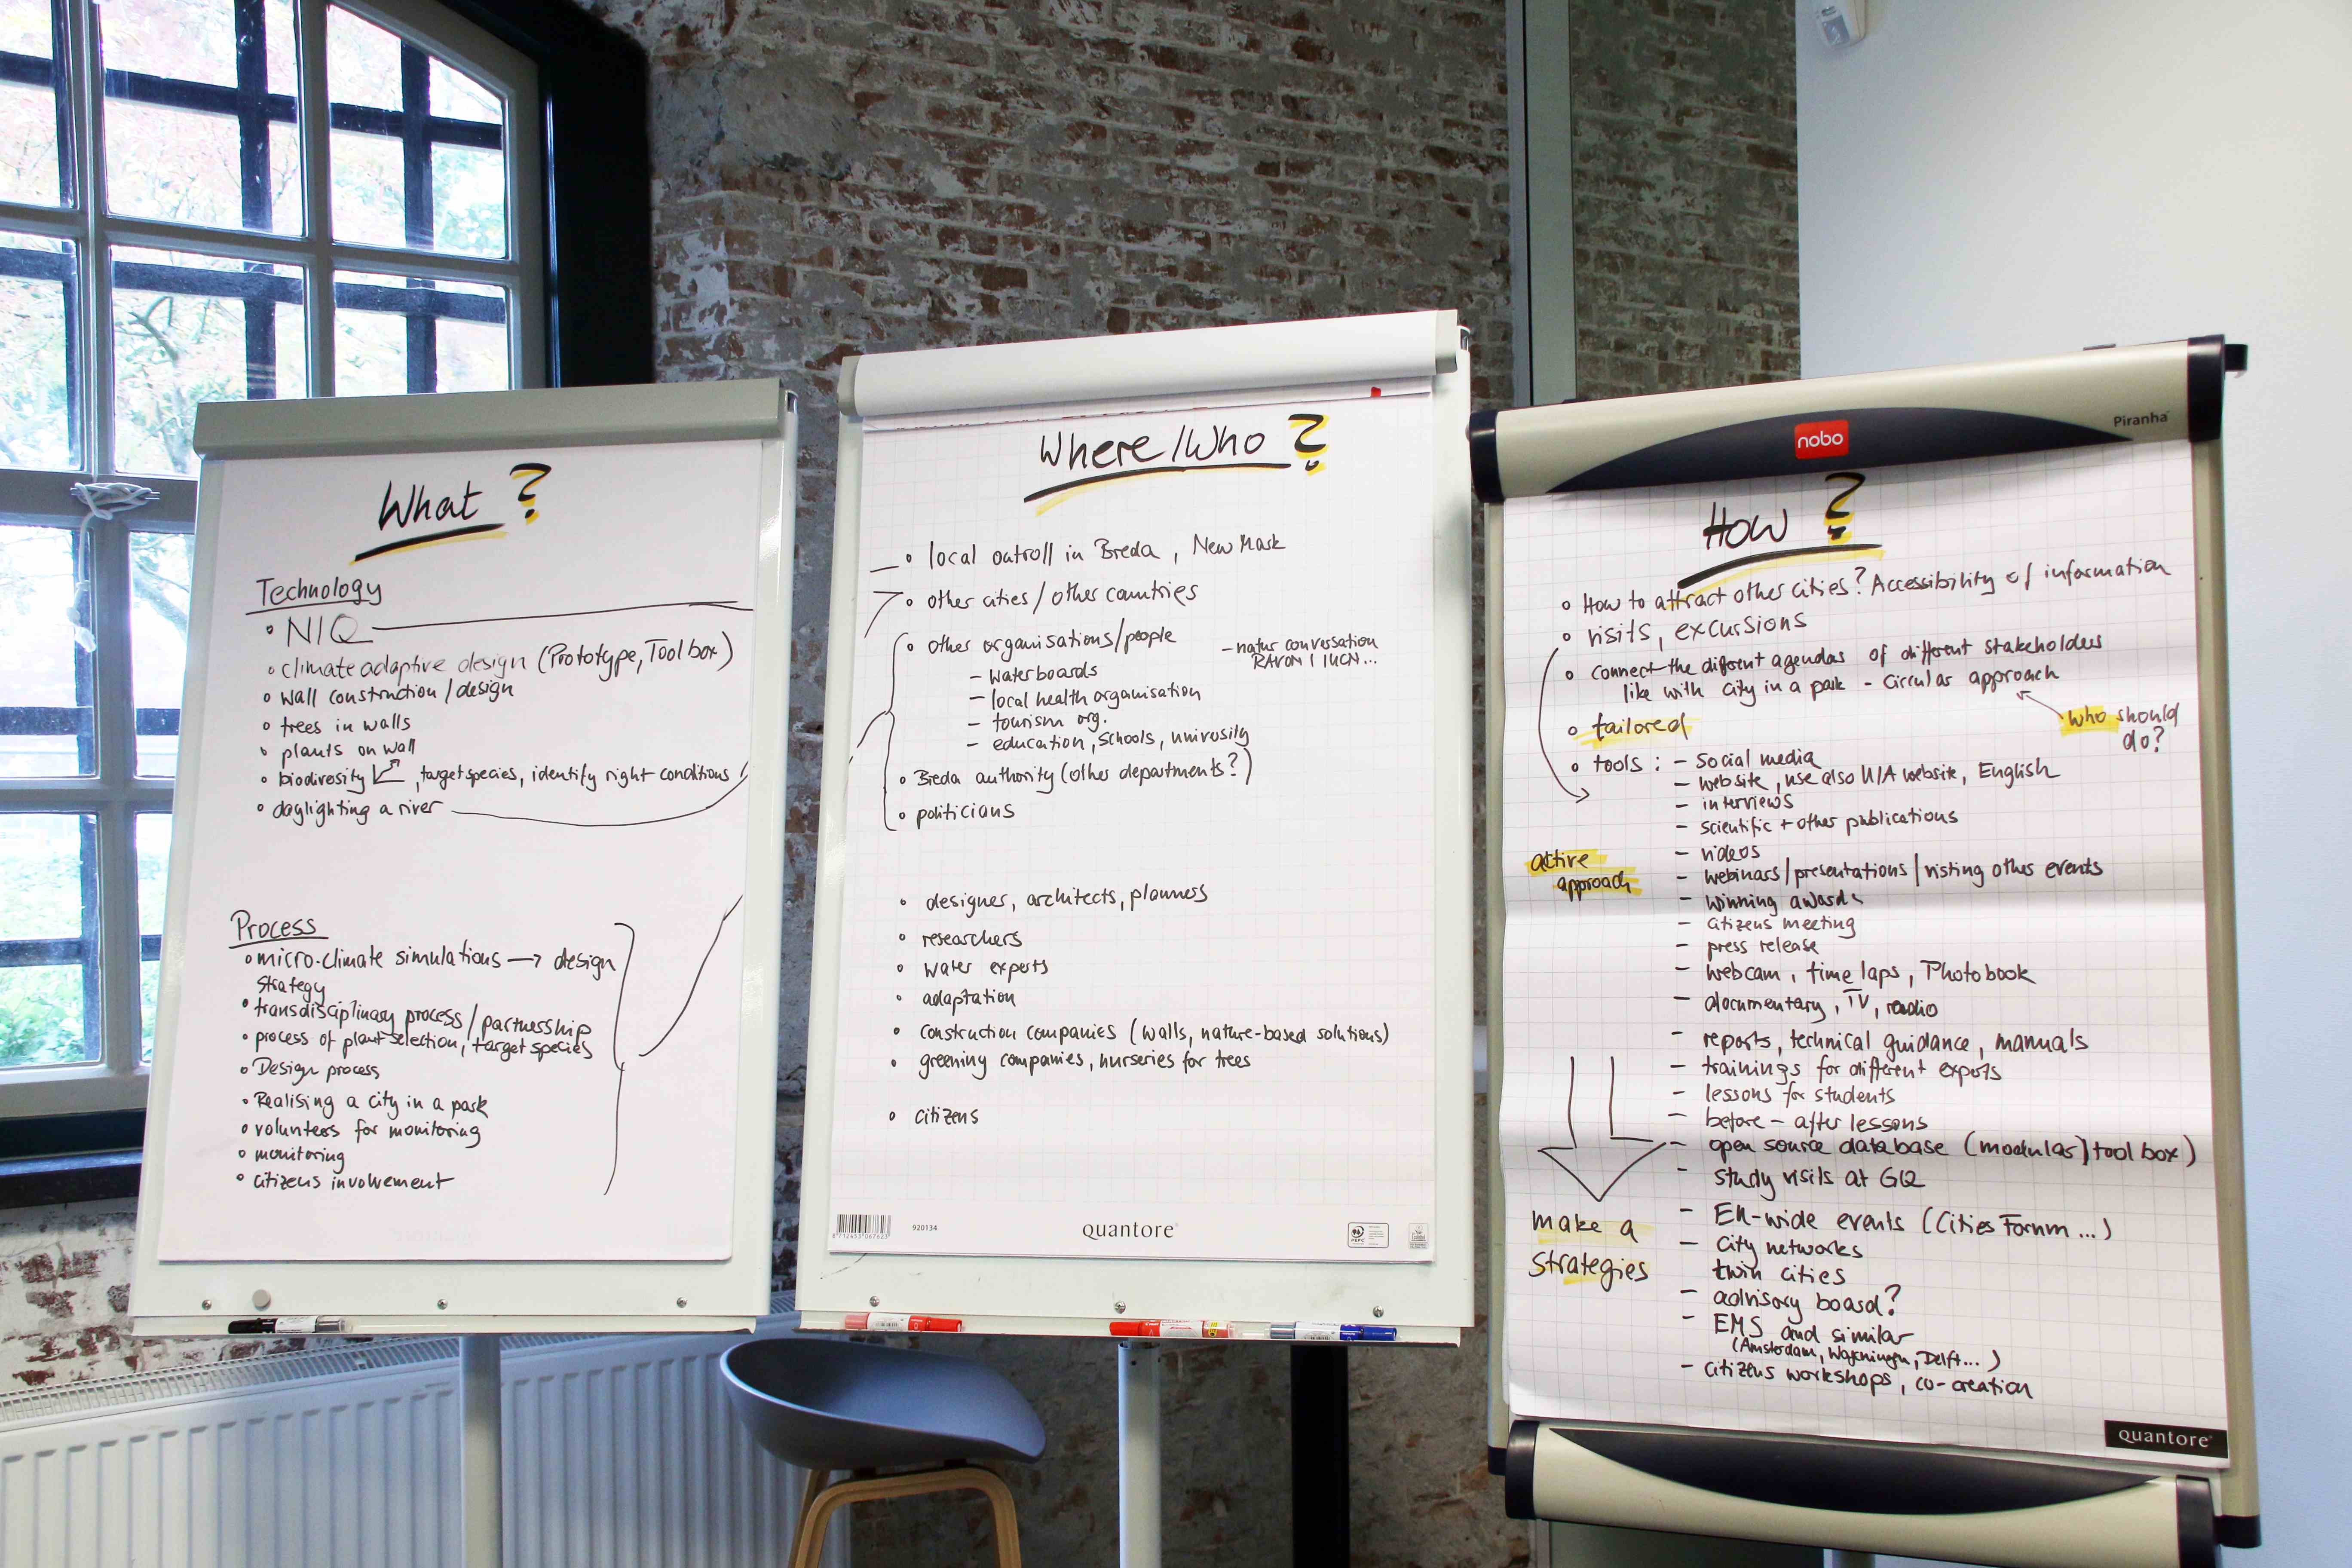 What ?
Technology
NIQ
climate adaptive design (Prototype, Tool box)
wall construction / design
trees in walls
plants on wall
biodiresity , target species, identify right conditions
daylighting a river
Process
micro-climate simulations → design
strategy
transdisciplinary process / partnership
process of plant selection, target species
Design process
Realising a city in a park
volunteers for monitoring
monitoring
citizens involvement
Where / Who ?
local outroll in Breda , New Mark
other cities / other countries
other organisations/people
- waterboards
- local health organisation
- tourism org.
- education, schools, univosity
- natur conversation
RAVON | IUCN...
Breda authority (other departments?)
politicians
designer, architects, planners
researchers
water experts
adaptation
construction companies (walls, nature-based solutions)
greening companies, nurseries for trees
citizens
920134
8 712453 067623
quantore
PEFC
nobo
Piranha
How ?
How to attract other cities? Accessibility of information
visits, excursions
connect the different agendas of different stakeholders
like with city in a park - circular approach
who should
do?
tailored
tools : - social media
- website, use also UIA website, English
- interviews
- scientific + other publications
- videos
active
approach
- webinars/presentations/visting other events
- winning awards
- citizens meeting
- press release
- webcam, time laps, Photobook
- documentary, TV, radio
- reports, technical guidance, manuals
- trainings for different experts
- lessons for students
- before - after lessons
- open source database (modular) tool box)
- study visits at GQ
make a
strategies
- EU-wide events (Cities Forum ...)
- city networks
twin cities
- advisory board?
- EMS and similar
(Amsterdam, Wageningen, Delft...)
- citizens workshops, co-creation
quantore